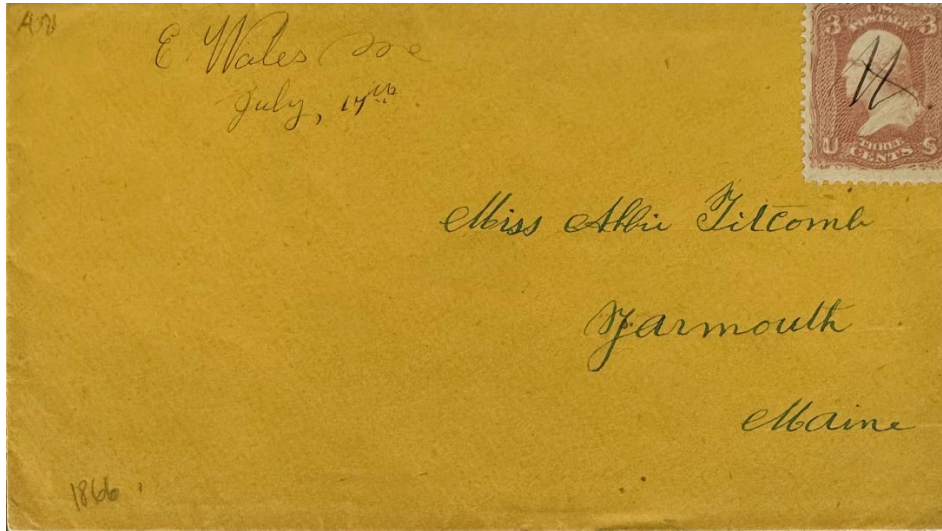 E Wales Me
July, 14th
3 U.S. 3
POSTAGE
U THREE S
CENTS
Miss Abbie Titcomb
Yarmouth
Maine
1866